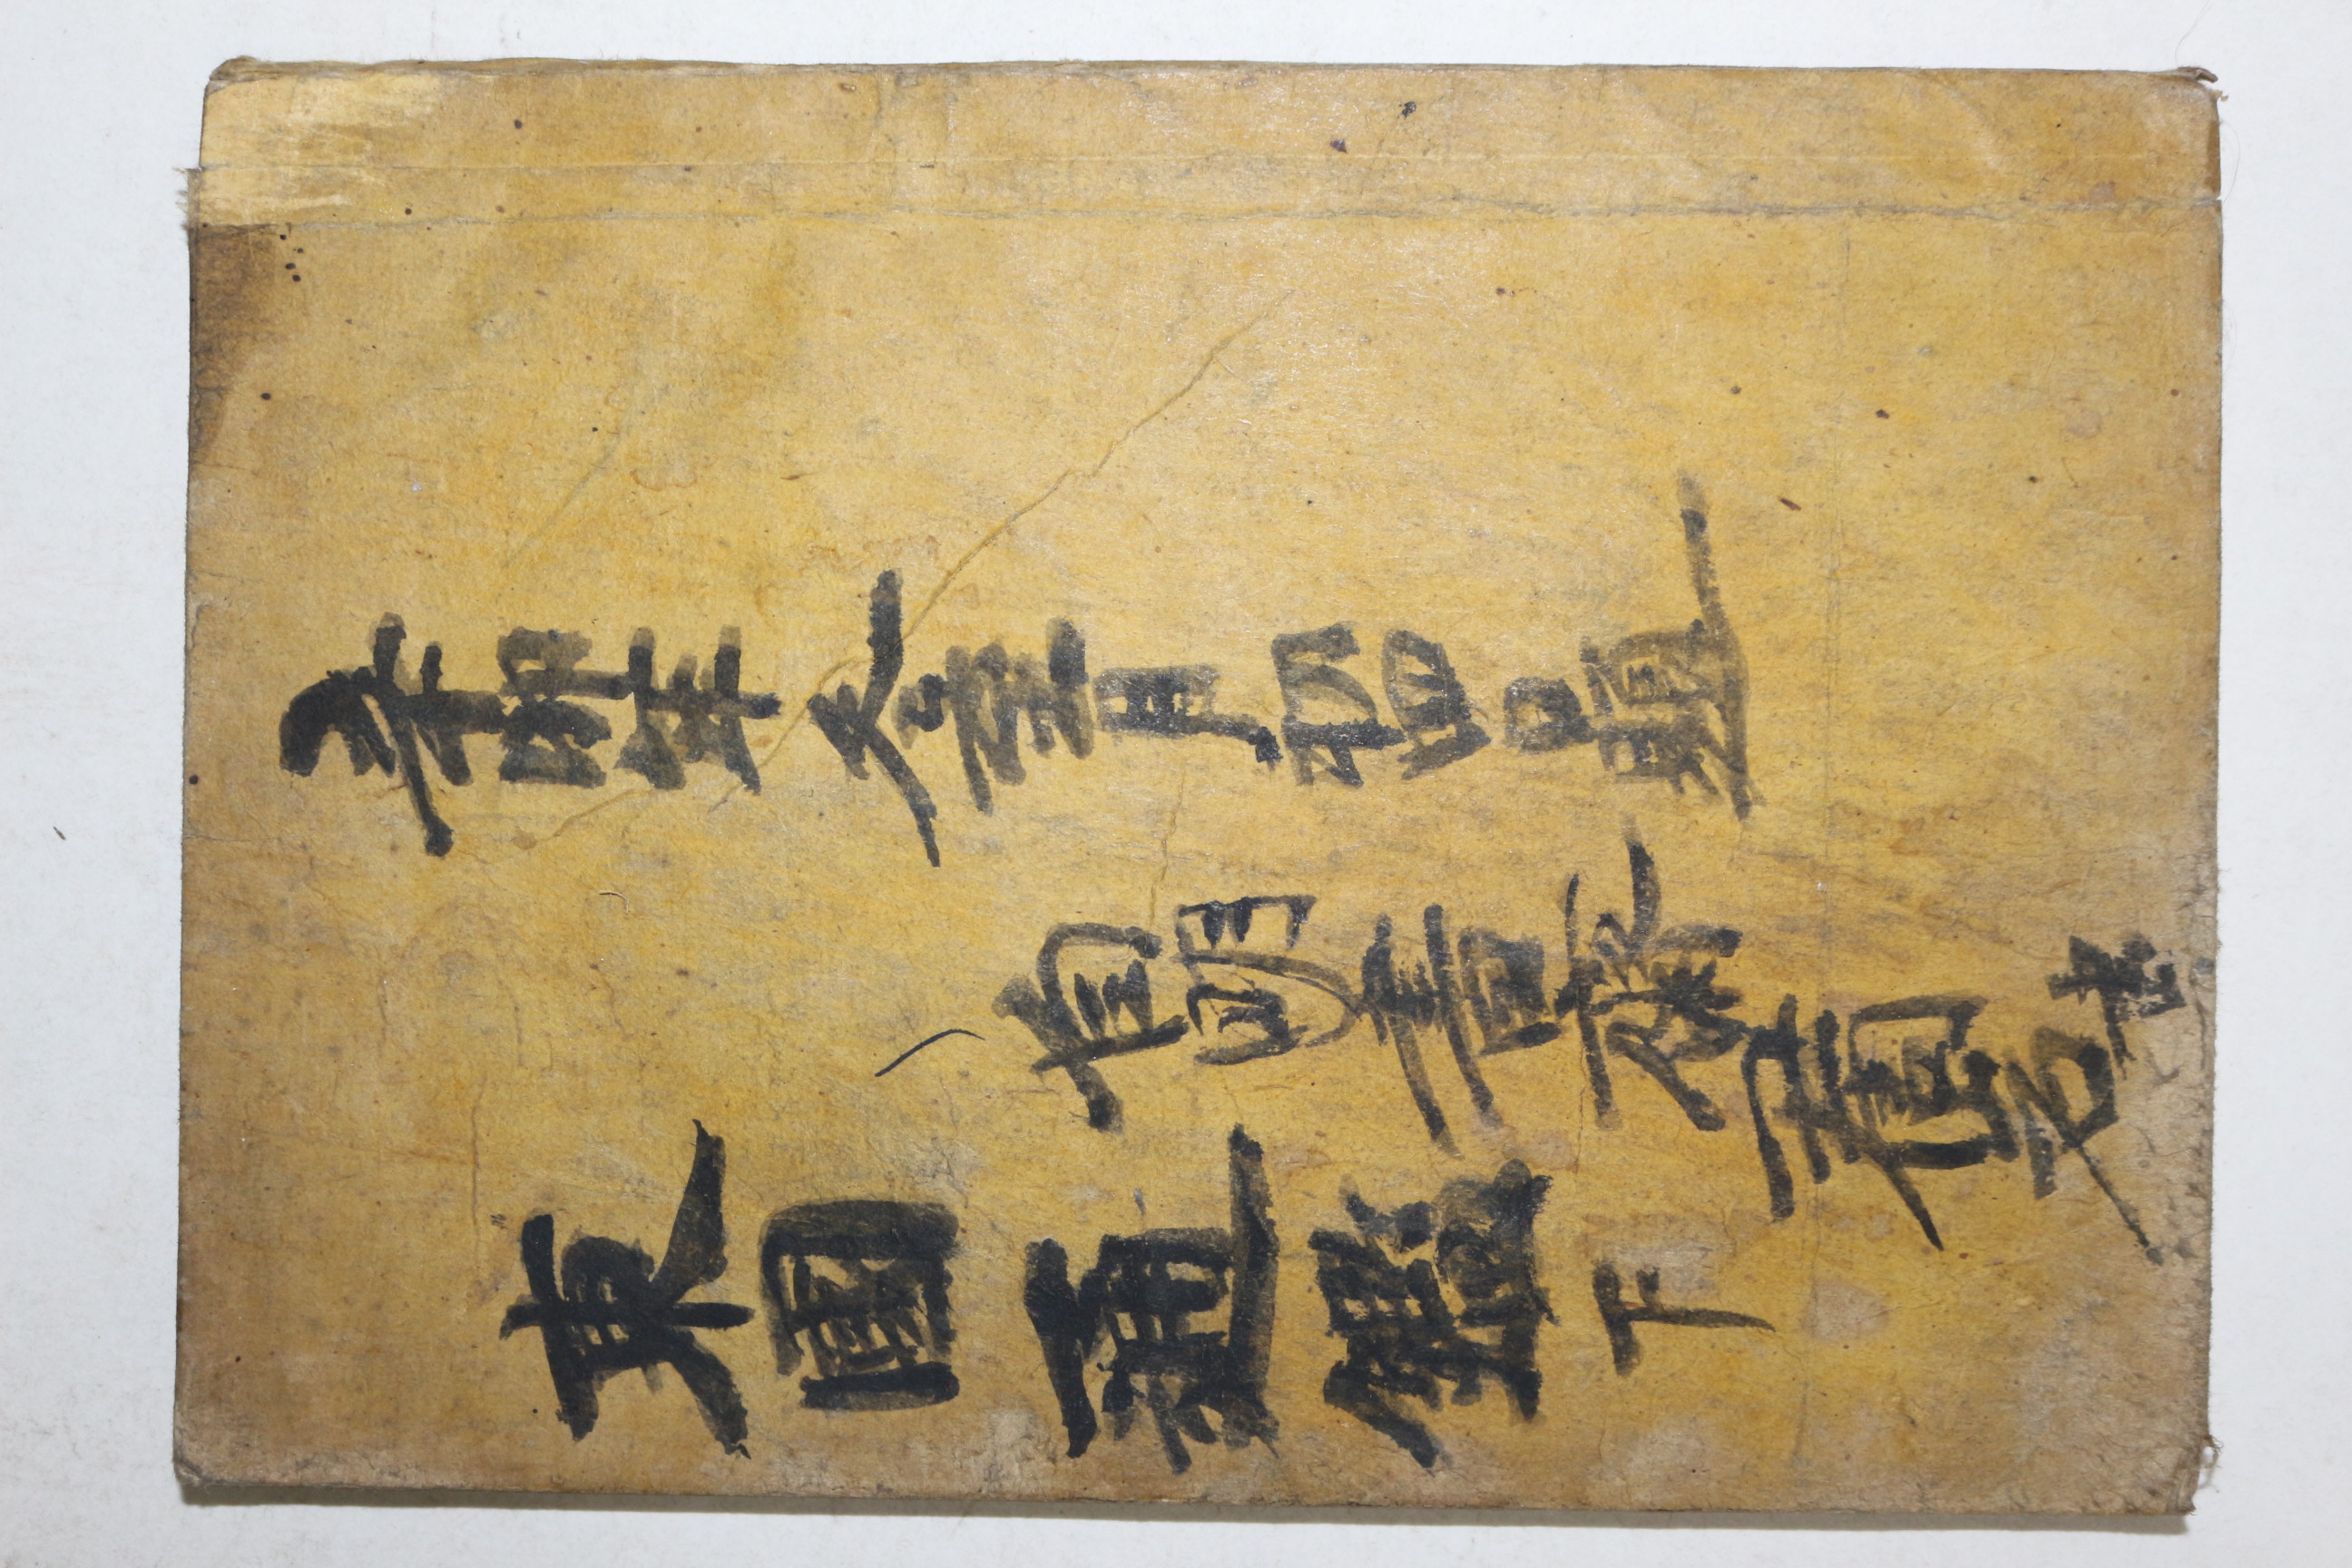 辛卯年冬至月初四日題
明書齋石書
東國通鑑下